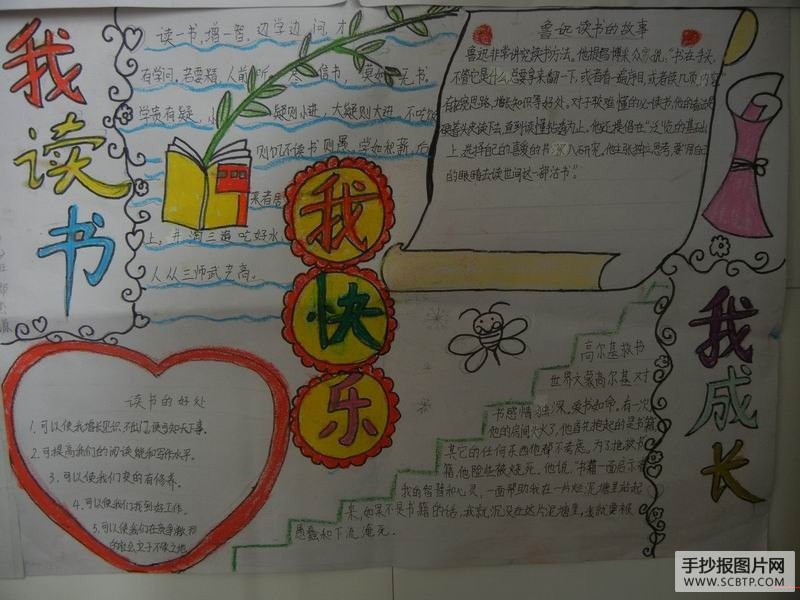 我读书
我快乐
我成长
读一书,增一智,边学边问,才
有学问。若要精,人前听。尽信书,莫如无书。
学贵有疑,小疑则小进,大疑则大进。不吃饭
则饥,不读书则愚。学如积薪,后
来者居
上。井淘三遍吃好水,
人从三师武艺高。
鲁迅读书的故事
鲁迅非常讲究读书方法。他提倡博采众家说:"书在手头,
不管它是什么,总要拿来翻一下,或者看一遍序目,或者读几页内容"
有拓思路,增长知识等好处。对于较难懂的必读书,他的看法是
硬着头皮读下去,直到读懂钻透为止。他还提倡在"泛览"的基础
上,选择自己喜爱的 入研究。他主张独立思考,要"用自己
的眼睛去读世间这一部活书"。
读书的好处
1.可以使我增长见识,不出门便可知天下事。
2.可提高我们的阅读能和写作水平。
3.可以使我们变的有修养。
4.可以使我们找到好工作。
5.可以使我们在竞争激烈
的社会立于不败之地
高尔基救书
世界文豪高尔基对
书感情独深,爱书如命。有一次
他的房间失火了,他首先抱起的是书籍
其它的任何东西他都不考虑。为了抢救书
籍,他险些被烧死。他说:"书籍一面启示着
我的智慧和心灵,一面帮助我在一片烂泥塘里站起
来,如果不是书籍的话,我就沉没在这片泥塘里,我就要被
愚蠢和下流淹死。
手抄报图片网
WWW.SCBTP.COM